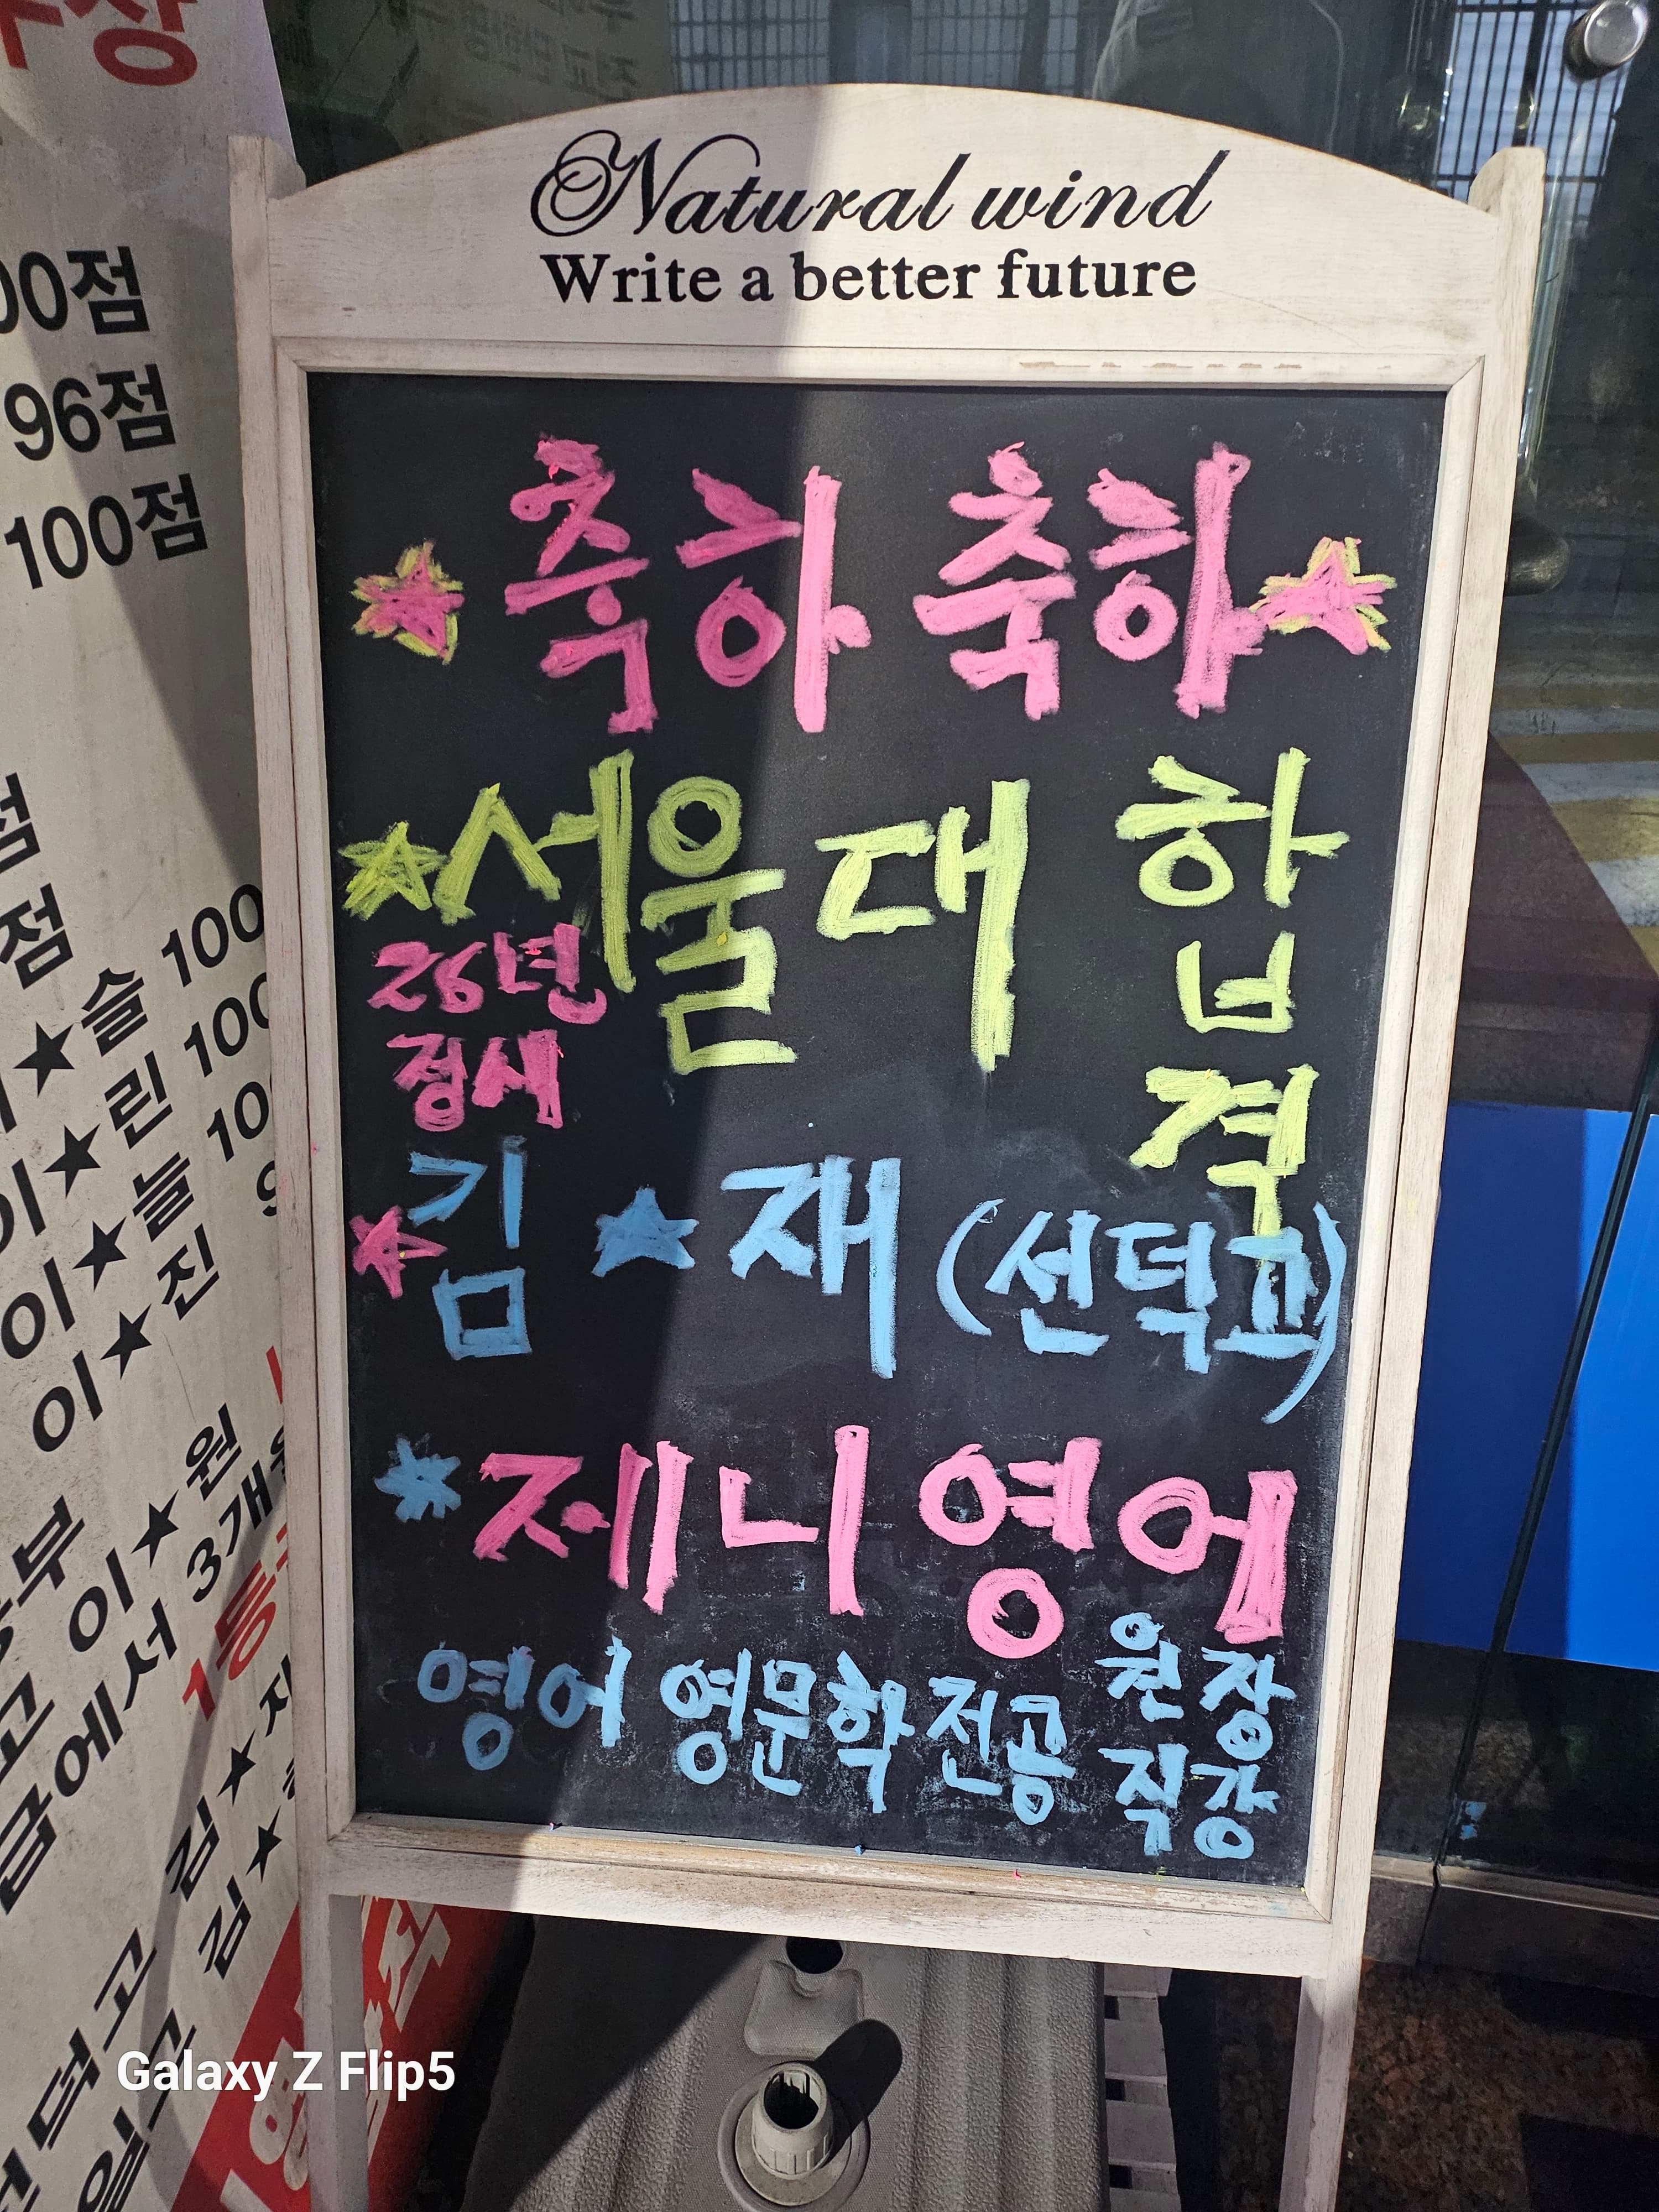 Natural wind
Write a better future
★축하 축하★
★서울대 합격
26년
정새
★김★재 (선덕고)
*제니영어
영어 영문학 전공 원장
직강
00점
96점
100점
점
점
★슬 100
이★린 100
이★늘 10
이★진 9
이★원
3개
급에서
1등
김★
김★
덕고
Galaxy Z Flip5